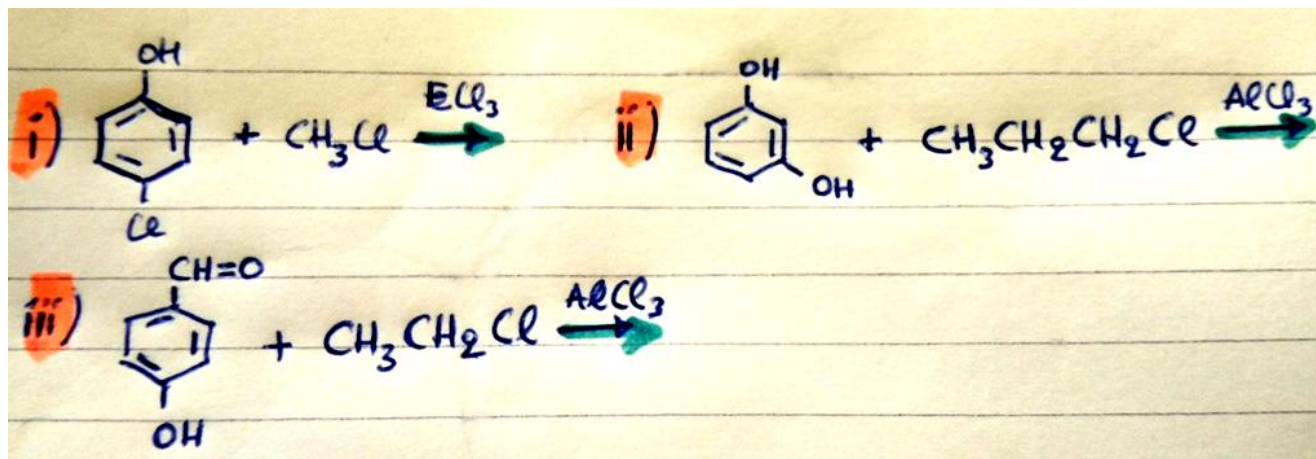 i) OH Cl + CH₃Cl ECl₃ ii) OH OH + CH₃CH₂CH₂Cl AlCl₃
iii) CH=O OH + CH₃CH₂Cl AlCl₃